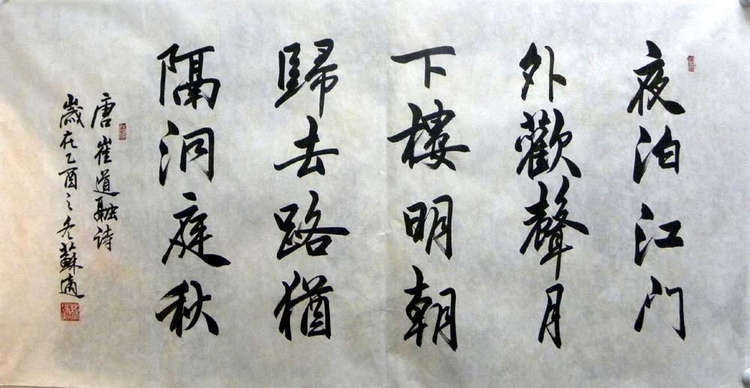 夜泊江门
外歡聲月
下樓明朝
歸去路猶
隔洞庭秋
唐崔道融詩
歲在乙酉之冬蘇適